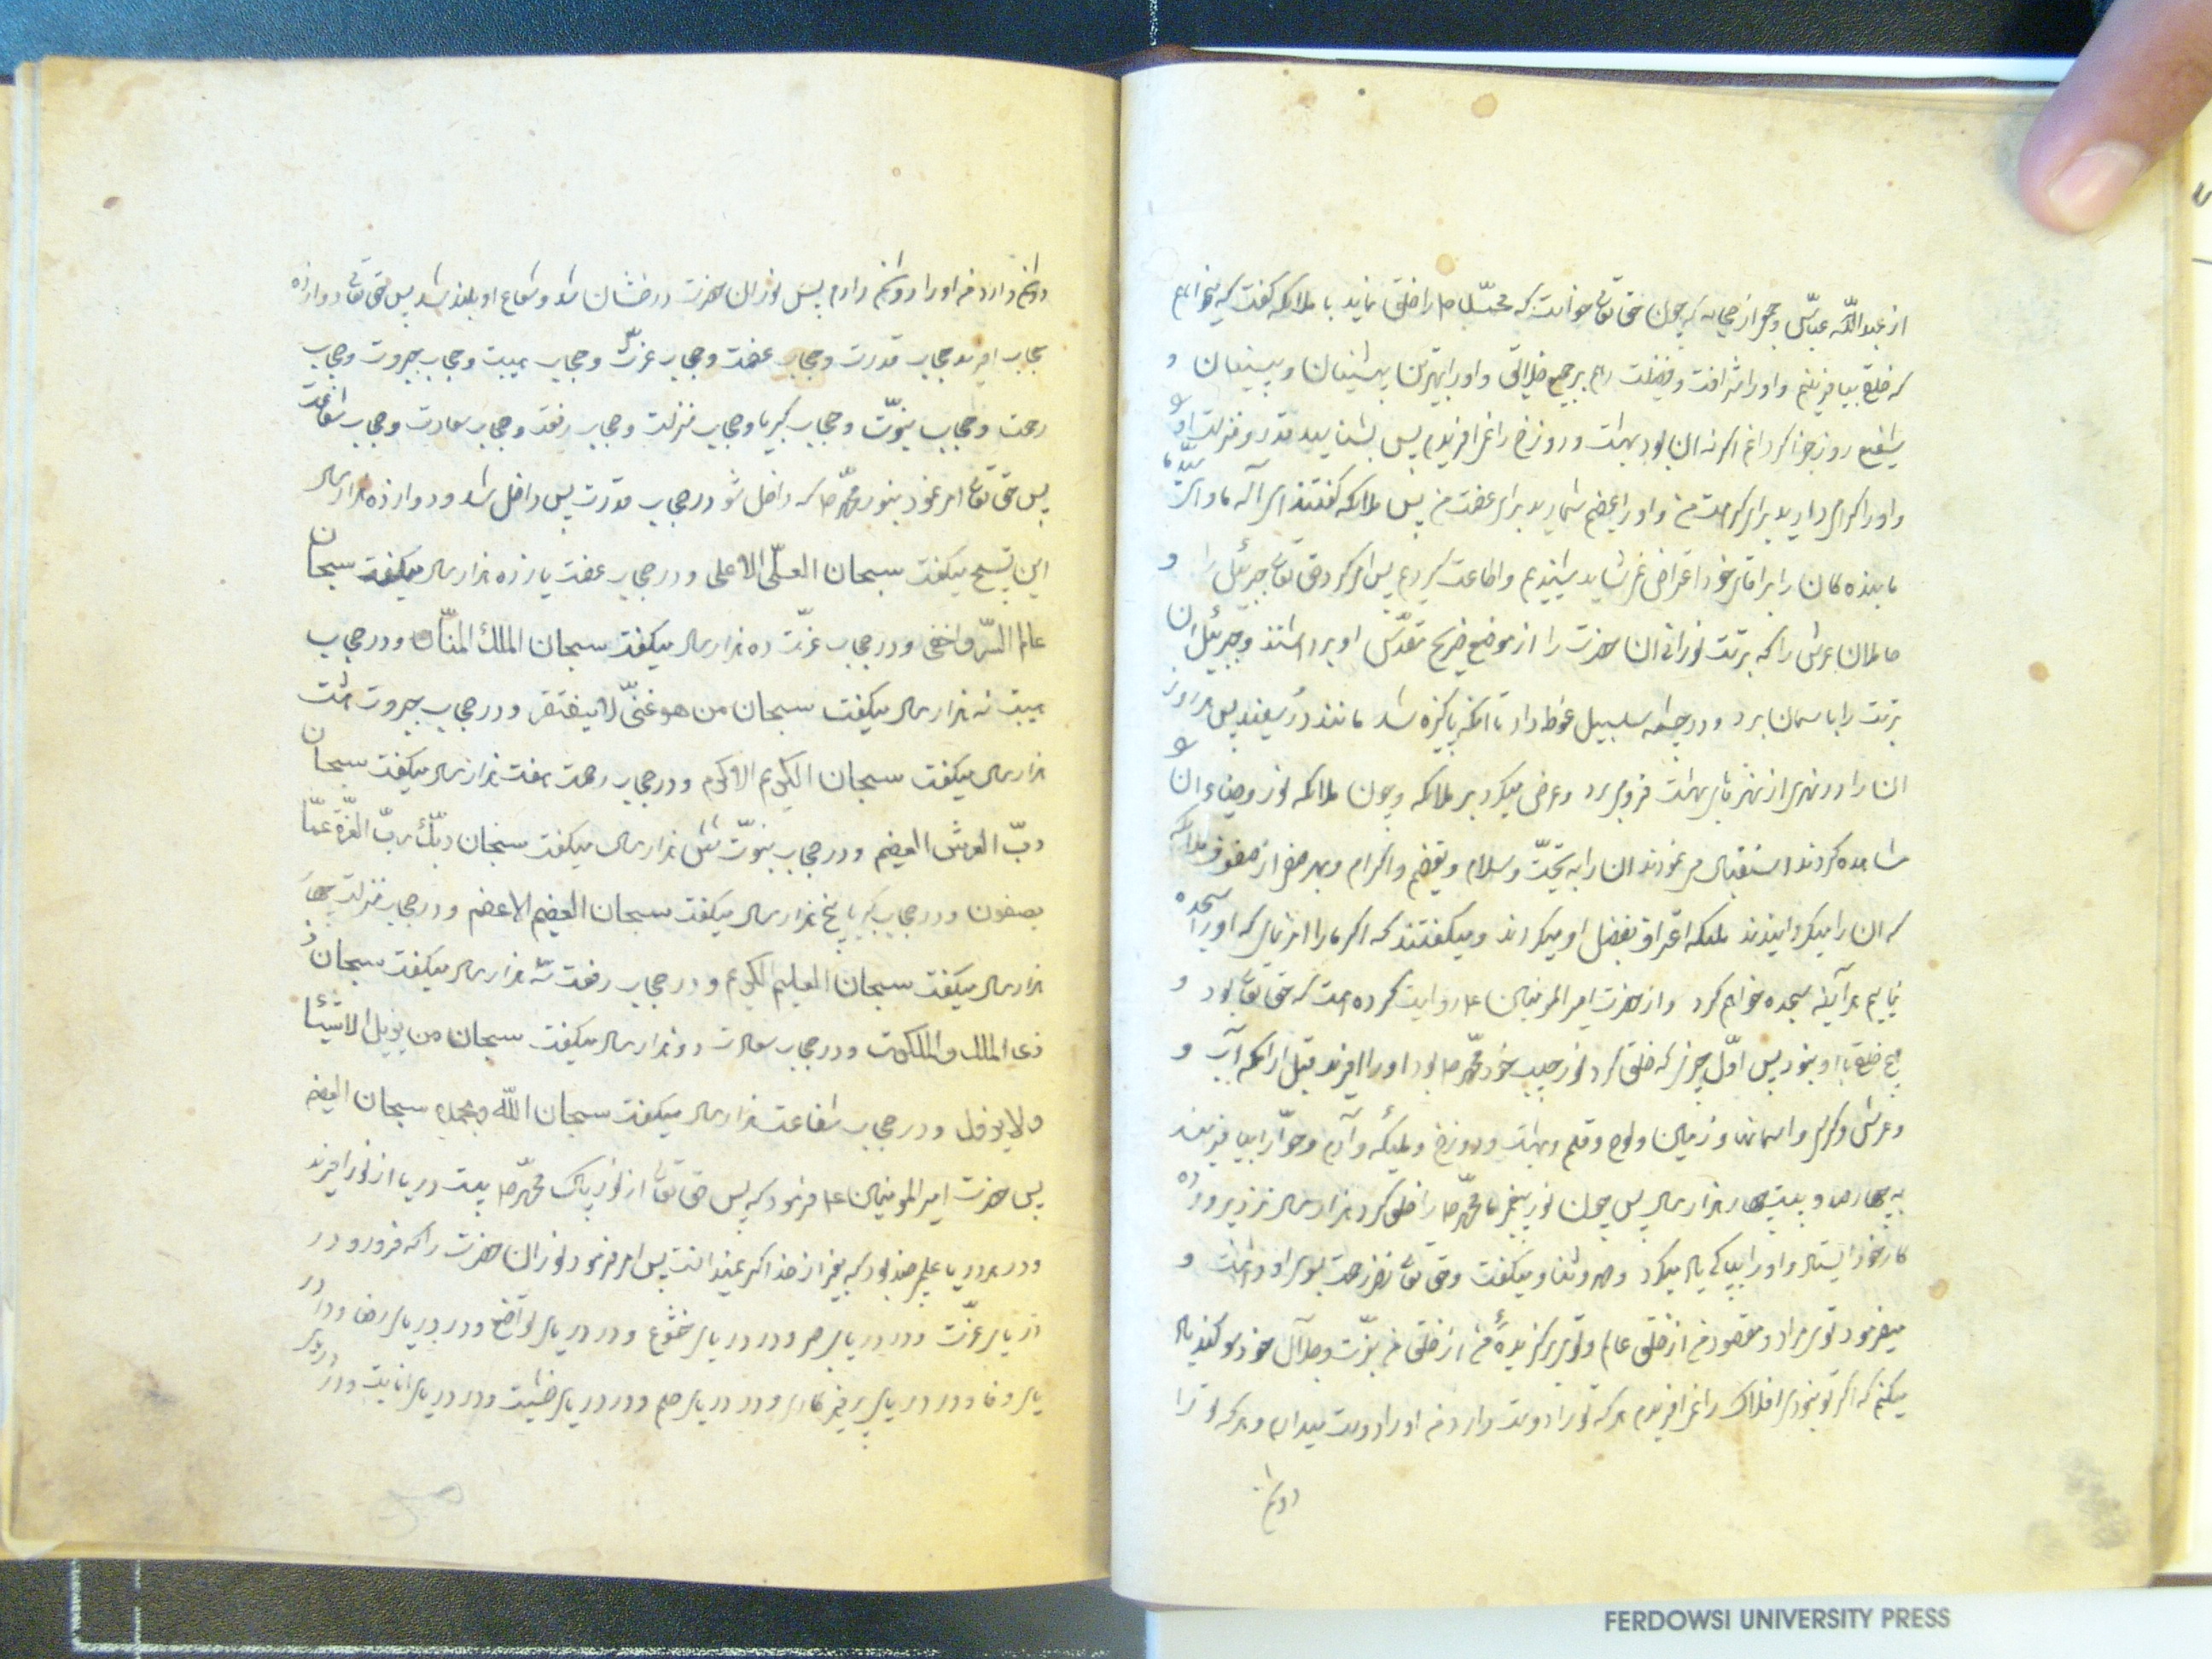 از عبد الله عباس و جمعی از صحابه که چون حق تعالی خواست که محمد ص را خلق نماید با ملائکه گفت که میخواهم
که خلقی بیافرینم و او را شرافت و فضیلت دهم بر جمیع خلایق و او را بهترین پیشینیان و پسینیان و
شفیع روز جزا گردانم اگر نه ان بود بهشت و دوزخ را نمی افریدم پس بشناسید قدر و منزلت او و
و او را گرامی دارید برای کرامت من و او را عظیم شمارید برای عظمت من پس ملائکه گفتند ای اله ما و ای سید ما
ما بنده گان را بر اقای خود اعتراض نمی شاید شنیدیم و اطاعت کردیم پس امر کرد حق تعالی جبرئیل را و
حاملان عرش را که تربت نورانی ان حضرت را از موضع ضریح مقدس او برداشتند و جبرئیل ان
تربت را باسمان برد و در چشمه سلسبیل غوطه داد تا انکه پاکیزه شد مانند در سفید پس هر روز
ان را در نهری از نهرهای بهشت فرو میبرد و عرض میکرد بر ملائکه و چون ملائکه نور و ضیاء ان
مشاهده کردند استقبال می نمودند ان را به تحیت و سلام و تعظیم و اکرام و بهر صفی از صفوف ملائکه
که ان را میگردانیدند ملئکه اعتراف بفضل او میکردند و میگفتند که اگر ما را امر نمائی که او را سجده
نماییم هر آینه سجده خواهیم کرد و از حضرت امیر المؤمنین ع روایت کرده است که حق تعالی بود و
هیچ خلق با او نبود پس اول چیزی که خلق کرد نور حبیب خود محمد ص بود او را افرید قبل ازانکه آب و
و عرش و کرسی و اسمانها و زمین و لوح و قلم و بهشت و دوزخ و ملیکه و آدم و حوا را بیافریند
به چهارصد و بیست و چهار هزار سال پس چون نور پیغمبر ما محمد ص را خلق کرد هزار سال نزد پروردگار
کار خود ایستاد و او را بپاکی یاد میکرد و حمد و ثنا و میگفت و حق تعالی نظر رحمت بسوی او داشت و
میفرمود توئی مراد و مقصود من از خلق عالم و توئی برگزیدهٔ من از خلق من بعزت و جلال خود سوگند یاد
میکنم که اگر تو نبودی افلاک را نمی افریدم هر که تو را دوست دارد من او را دوست میدارم و هر که تو را
دشمن
دشمن دارد من او را دشمن دارم پس نور ان حضرت درخشان شد و شعاع او بلند شد پس حق تعالی دوازده
حجاب افرید حجاب قدرت و حجاب عظمت و حجاب عزت و حجاب هیبت و حجاب جبروت و حجاب
رحمت و حجاب نبوت و حجاب کبریا و حجاب منزلت و حجاب رفعت و حجاب سعادت و حجاب شفاعت
پس حق تعالی امر نمود بنور محمد ص که داخل شو در حجاب قدرت پس داخل شد و دوازده هزار سال
این تسبیح میگفت سبحان العلی الاعلی و در حجاب عظمت یازده هزار سال میگفت سبحان
عالم السر و اخفی و در حجاب عزت ده هزار سال میگفت سبحان الملك المنان و در حجاب
هیبت نه هزار سال میگفت سبحان من هو غنی لا یفتقر و در حجاب جبروت هشت
هزار سال میگفت سبحان الکریم الاکرم و در حجاب رحمت هفت هزار سال میگفت سبحان
رب العرش العظیم و در حجاب نبوت شش هزار سال میگفت سبحان ربك رب العزة عما
یصفون و در حجاب کبریا پنج هزار سال میگفت سبحان العظیم الاعظم و در حجاب منزلت چهار
هزار سال میگفت سبحان العلیم الکریم و در حجاب رفعت سه هزار سال میگفت سبحان
ذی الملك و الملکوت و در حجاب سعادت دو هزار سال میگفت سبحان من یزیل الاشیاء
و لا یزول و در حجاب شفاعت هزار سال میگفت سبحان الله و بحمده سبحان العظیم
پس حضرت امیر المؤمنین ع فرمود که پس حق تعالی از نور پاک محمد ص بیست دریا از نور افرید
و در هر دریا علمی چند بود که بغیر از خدا کسی نمیدانست پس امر فرمود نور ان حضرت را که فرو رود در
دریای عزت و در دریای صبر و در دریای خشوع و در دریای تواضع و در دریای رضا و در
یای وفا و در دریای پرهیزکاری و در دریای حلم و در دریای خشیت و در دریای انابت و در دریای
FERDOWSI UNIVERSITY PRESS